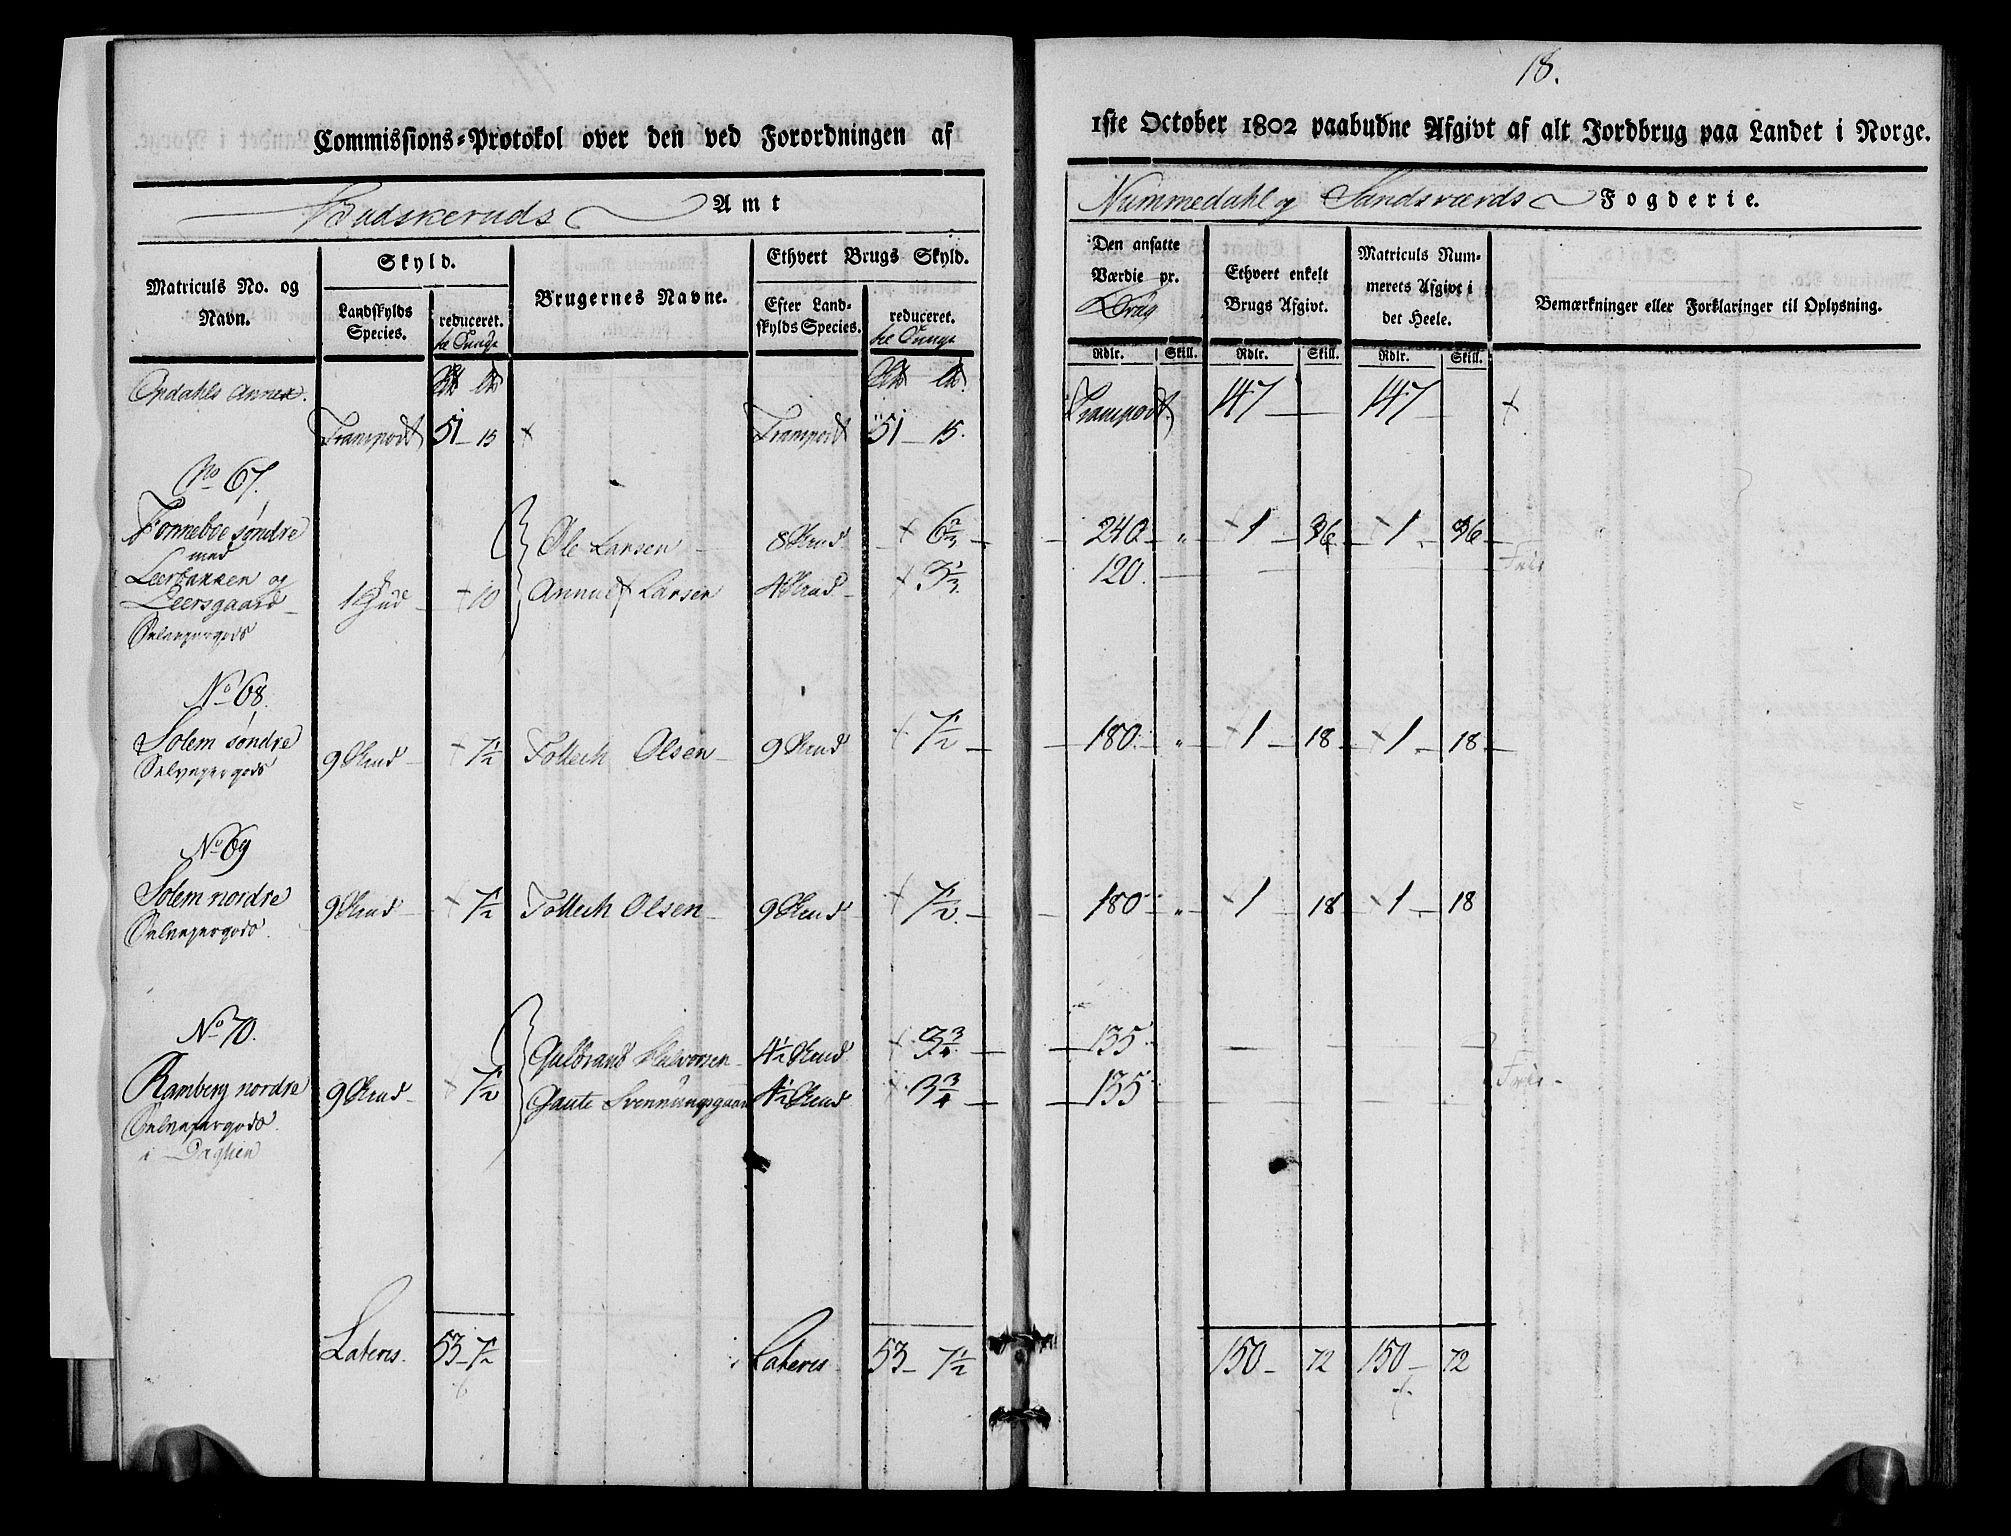 18.
Commissions-Protokol over den ved Forordningen af
1ste October 1802 paabudne Afgivt af alt Jordbrug paa Landet i Norge.
Budskeruds Amt
Nummedahl og Sandsværds Fogderie.
Matriculs No. og Navn.
Skyld.
Landskylds Species.
reduceret. til Tunge
Brugernes Navne.
Ethvert Brugs Skyld.
Efter Landskylds Species.
reduceret. til Tunge
Den ansatte Værdie pr. Brug
Ethvert enkelt Brugs Afgivt.
Matriculs Nummerets Afgivt i det Heele.
Bemærkninger eller Forklaringer til Oplysning.
Rdlr. Skill. Rdlr. Skill. Rdlr. Skill.
Opdahls Annex.
Transport 51 - 15 Transport 51 - 15. Transport 147 - 147 -
No 67.
Fonneboe søndre
med
Leerbakken og
Leersgaard
Selvejergods
1 Hud 10
Ole Larsen 8 Skind 6 2/3 240 - " 1 - 36 1 - 36
Larsen 4 Skind 3 1/3 120. Frie
No 68.
Solem søndre
Selvejergods
9 Skind 7 1/2 Tollech Olsen 9 Skind 7 1/2 180 " 1 - 18 1 - 18
No 69
Solem nordre
Selvejergods.
9 Skind 7 1/2 Tollech Olsen 9 Skind 7 1/2 180 " 1 18 1 - 18
No 70.
Ramberg nordre
Selvejergods
i
9 Skind 7 1/2
Gulbrand Halvorsen 4 1/2 Skind 3 3/4 135
Gaute Svennungsgaard 4 1/2 Skind 3 3/4 135 Frie
Lateris. 53 - 7 1/2 Lateris 53 - 7 1/2 150 - 72 150 - 72